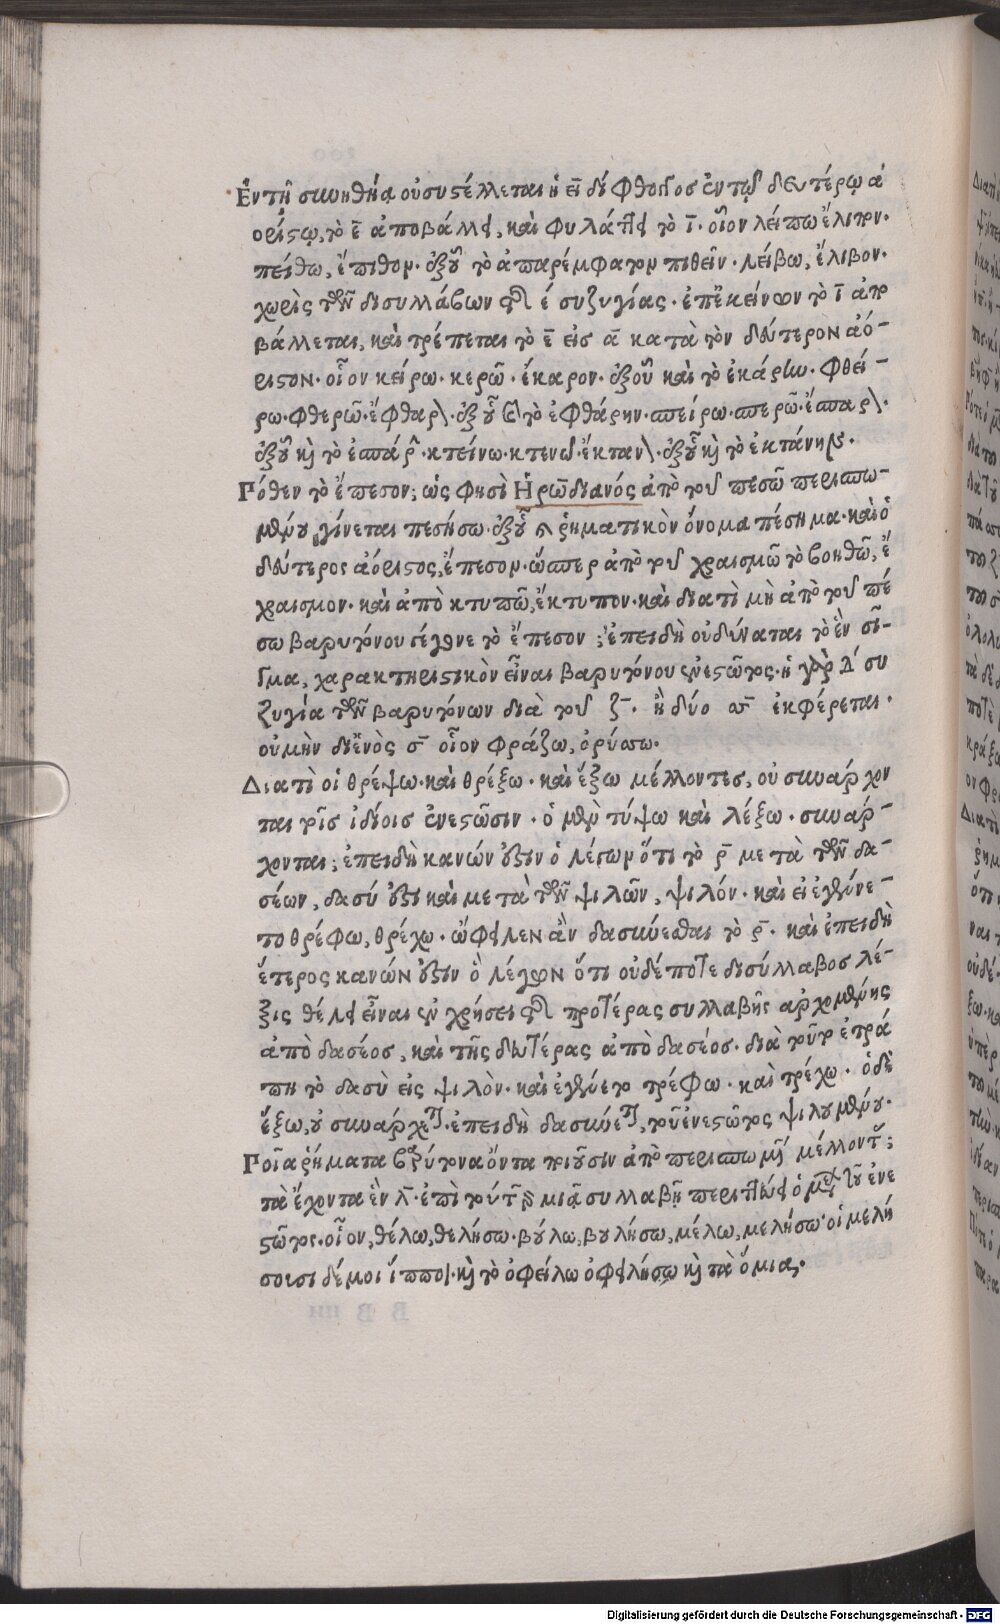 Ἐν τῇ σκωηθήᾳ οὐ συστέλλεται ἡ εῖ δίφθογγος ἐν τῷ δευτέρῳ ἀ
ορίστῳ, τὸ ε̄ ἀποβάλλει, καὶ φυλάττει τὸ ῑ. οἷον λείπω ἔλιπον.
πείθω, ἔπιθον. ἐξ οὗ τὸ ἀπαρέμφατον πιθεῖν. λείβω, ἔλιβον.
χωρὶς τῶν δισυλλάβων τῆς έ συζυγίας. ἐπ' ἐκείνων τὸ ῑ ἀπο
βάλλεται, καὶ τρέπεται τὸ ε̄ εἰς ᾱ κατὰ τὸν δεύτερον ἀό-
ριστον. οἷον κείρω. κερῶ. ἔκαρον. ἐξ οὗ καὶ τὸ ἐκάρην. φθεί-
ρω. φθερῶ. ἔφθαρον. ἐξ οὗ καὶ τὸ ἐφθάρην. σπείρω. σπερῶ. ἔσπαρον.
ἐξ οὗ καὶ τὸ ἐσπάρην. κτείνω. κτενῶ. ἔκτανον. ἐξ οὗ καὶ τὸ ἐκτάνην.
Πόθεν τὸ ἔπεσον; ὡς φησὶ Ἡρωδιανός ἀπὸ τοῦ πεσῶ περισπω-
μένου γίνεται πεσήσω. ἐξ οὗ ῥηματικὸν ὄνομα πέσημα. καὶ ὁ
δεύτερος ἀόριστος, ἔπεσον. ὥσπερ ἀπὸ τοῦ χραισμῶ τὸ βοηθῶ, ἔ
χραισμον. καὶ ἀπὸ κτυπῶ, ἔκτυπον. καὶ διατὶ μὴ ἀπὸ τοῦ πέ
σω βαρυτόνου γέγονε τὸ ἔπεσον; ἐπειδὴ οὐ δύναται τὸ ἓν σῖ-
γμα, χαρακτηριστικὸν εἶναι βαρυτόνου ἐνεστῶτος. ἡ γὰρ Δ΄ συ
ζυγία τῶν βαρυτόνων διὰ τοῦ ζ̄. ἢ δύο σσ̄ ἐκφέρεται.
οὐ μὴν δι' ἑνὸς σ̄ οἷον φράζω, ὀρύσσω.
Διατὶ οἱ θρέψω. καὶ θρέξω. καὶ ἕξω μέλλοντες, οὐ συνάρχον
ται τοῖς ἰδίοις ἐνεστῶσιν. ὁ μὲν τύψω καὶ λέξω. συνάρ-
χονται; ἐπειδὴ κανών ἐστιν ὁ λέγων ὅτι τὸ ρ̄ μετὰ τῶν δα-
σέων, δασύ ἐστι καὶ μετὰ τῶν ψιλῶν, ψιλόν. καὶ εἰ ἐγένε-
το θρέφω, θρέχω. ὤφειλεν ἂν δασύνεσθαι τὸ ρ̄. καὶ ἐπειδὴ
ἕτερος κανών ἐστιν ὁ λέγων ὅτι οὐδέποτε δισύλλαβος λέ-
ξις θέλει εἶναι ἐν χρήσει τῆς προτέρας συλλαβῆς ἀρχομένης
ἀπὸ δασέος, καὶ τῆς δευτέρας ἀπὸ δασέος. διὰ τοῦτο ἐτρά
πη τὸ δασὺ εἰς ψιλὸν. καὶ ἐγένετο τρέφω. καὶ τρέχω. ὁ δὲ
ἕξω, οὐ συνάρχεται. ἐπειδὴ δασύνεται, τοῦ ἐνεστῶτος ψιλουμένου.
Ποῖα ῥήματα βαρύτονα ὄντα ποιοῦσιν ἀπὸ περισπωμένου μέλλοντα;
τὰ ἔχοντα ἓν λ̄. ἐπὶ τούτοις μιᾷ συλλαβῇ περιττεύει ὁ μέλλων τοῦ ἐνε
στῶτος. οἷον, θέλω, θελήσω. βούλω, βουλήσω, μέλω, μελήσω. οἱ μελή
σουσι δέ μοι ἵπποι. καὶ τὸ ὀφείλω ὀφειλήσω καὶ τὰ ὅμοια.